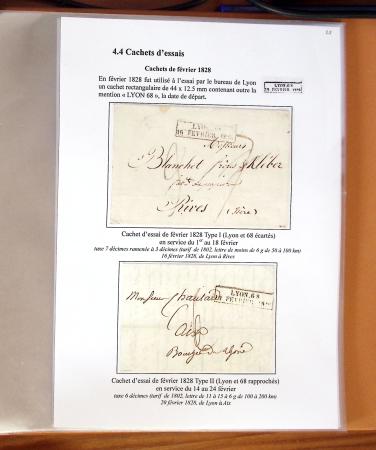 4.4 Cachets d'essais
Cachets de février 1828
En février 1828 fut utilisé à l'essai par le bureau de Lyon
un cachet rectangulaire de 44 x 12.5 mm contenant outre la
mention « LYON 68 », la date de départ.
LYON.68
FEVRIER 1828
LYON. 68
16 FEVRIER. 1828
Messieurs
Blanchet frères & Kléber
à Rives
(Isère)
Cachet d'essai de février 1828 Type I (Lyon et 68 écartés)
en service du 1er au 18 février
taxe 7 décimes ramenée à 3 décimes (tarif de 1802, lettre de moins de 6 g de 50 à 100 km)
16 février 1828, de Lyon à Rives
LYON.68
FEVRIER 1828
Monsieur
Aix
Cachet d'essai de février 1828 Type II (Lyon et 68 rapprochés)
en service du 14 au 24 février
taxe 6 décimes (tarif de 1802, lettre de 11 à 15 à 6 g de 100 à 200 km)
20 février 1828, de Lyon à Aix